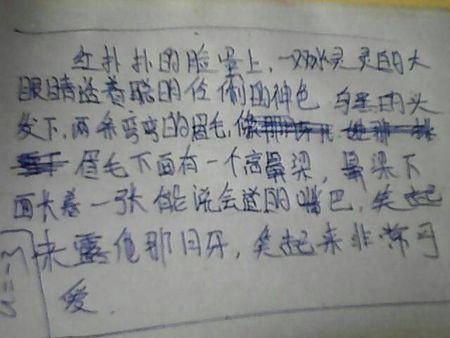 红扑扑的脸蛋上,一双水灵灵的大
眼睛透着聪明伶俐的神色 乌黑的头
发下,两条弯弯的眉毛,
眉毛下面有一个高鼻梁,鼻梁下
面长着一张能说会道的嘴巴,笑起
来露他那月牙,笑起来非常可
爱.